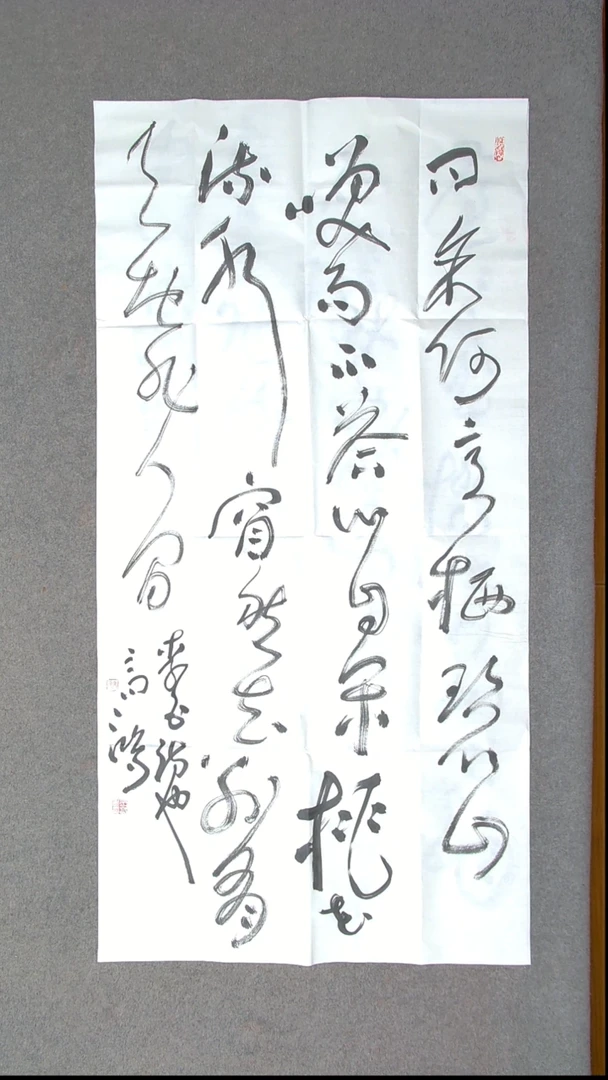 问余何意栖碧山
笑而不答心自闲桃花
流水窅然去别有
天地非人间
李白诗也
高鸿